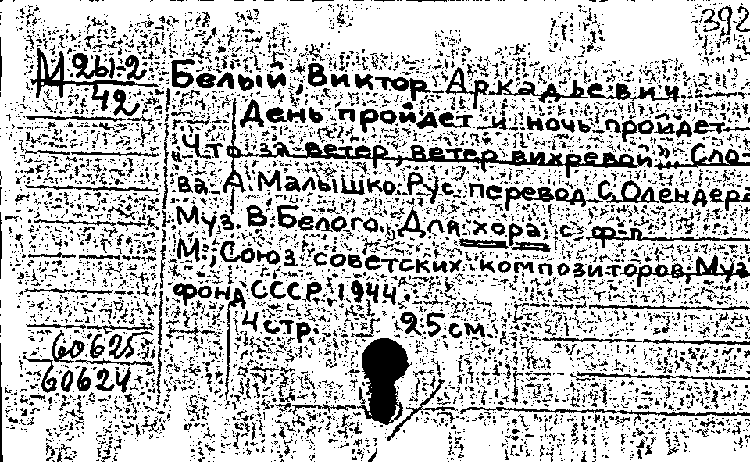 392
М 261-2
42
Белый, Виктор Аркадьевич
День пройдет и ночь пройдет
"Что за ветер, ветер вихревой". Сло-
ва А. Малышко. Рус. перевод С. Олендера
Муз. В. Белого. Для хора с ф-п
М., Союз советских композиторов, Муз
фонд СССР. 1944.
4 стр. 25 см
60625
60624